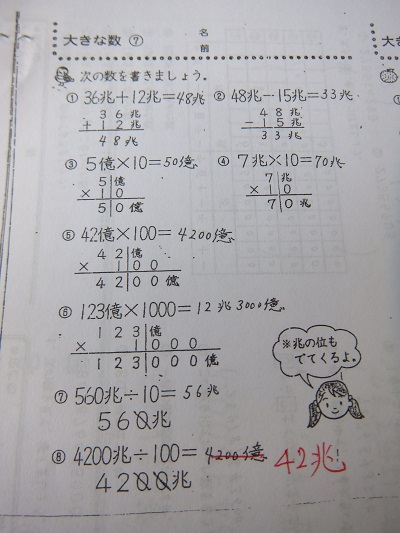 大きな数 ⑦
名前
次の数を書きましょう。
① 36兆+12兆=48兆
36兆
+12兆
48兆
② 48兆-15兆=33兆
48兆
-15兆
33兆
③ 5億×10=50億
5億
×10
50億
④ 7兆×10=70兆
7兆
×10
70兆
⑤ 42億×100=4200億
42億
×100
4200億
⑥ 123億×1000=12兆3000億
123億
×1000
123000億
※兆の位も
でてくるよ。
⑦ 560兆÷10=56兆
560兆
⑧ 4200兆÷100=4200億 42兆!
4200兆
大